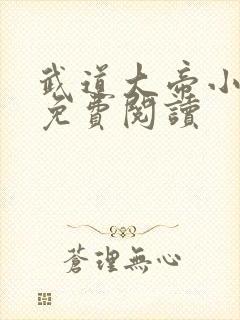 武道大帝小
免費閱讀
蒼理無心